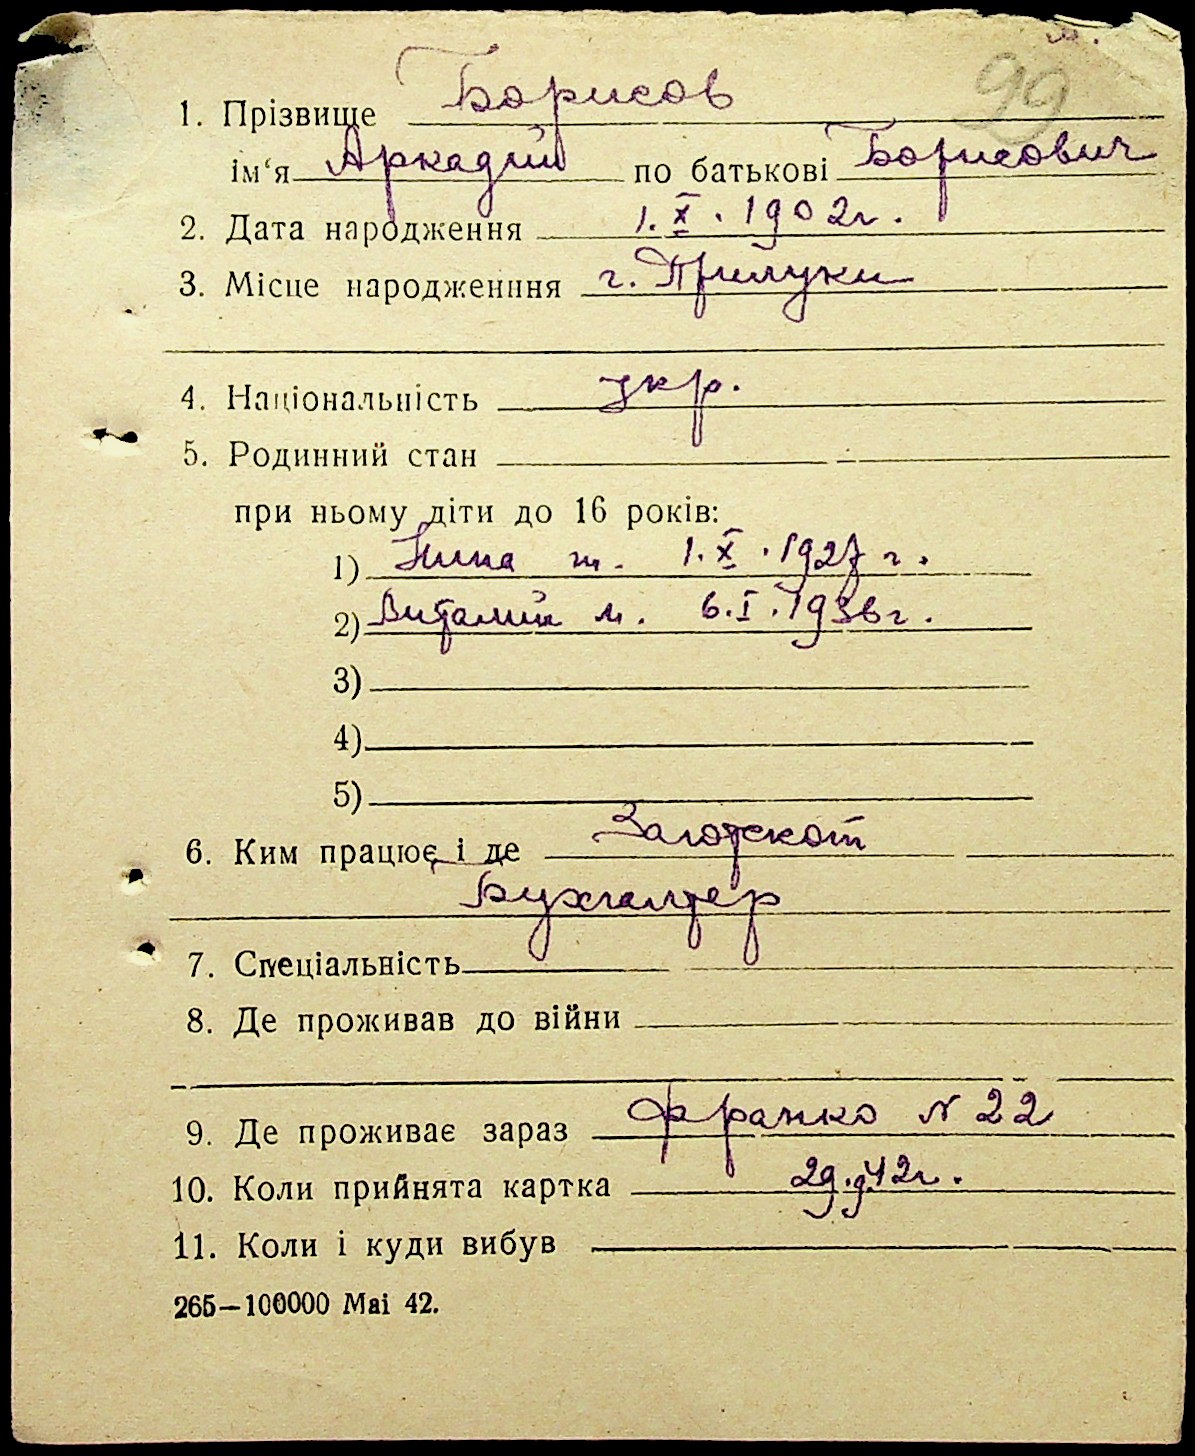 м.
99
1. Прізвище Борисов
ім‘я Аркадий по батькові Борисович
2. Дата народження 1.X.1902г.
3. Місце народженння г. Прилуки
4. Національність укр.
5. Родинний стан
при ньому діти до 16 років:
1) Нина ж. 1.X.1927 г.
2) Виталий м. 6.I.1936г.
3)
4)
5)
6. Ким працює і де Заготскот
Бухгалтер
7. Спеціальність
8. Де проживав до війни
9. Де проживає зараз Франко N 22
10. Коли прийнята картка 29.9.42г.
11. Коли і куди вибув
265—100000 Mai 42.